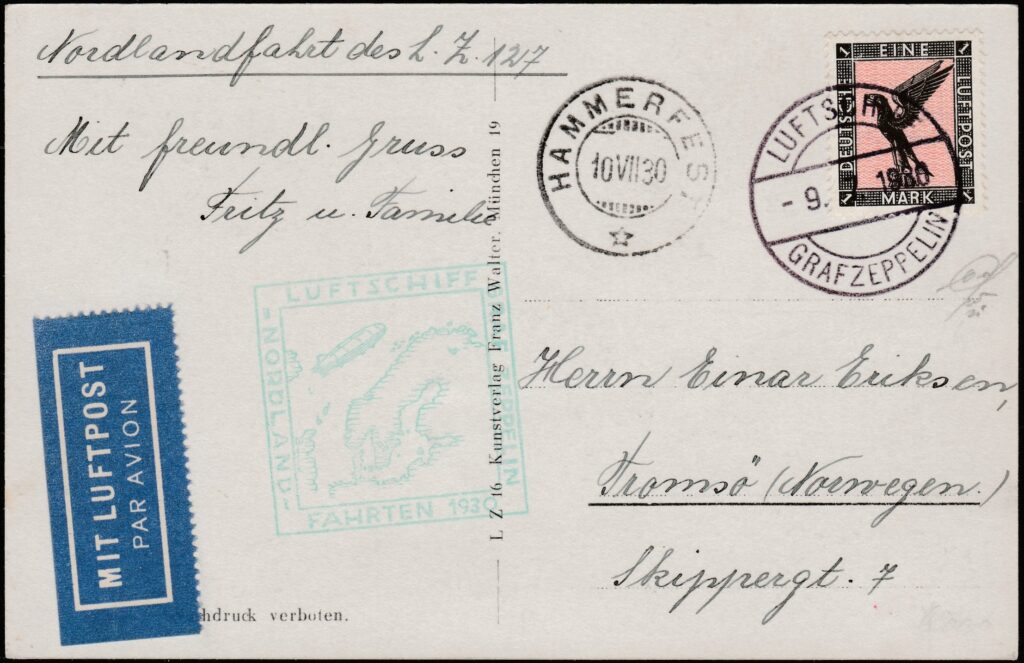 Nordlandfahrt des L. Z. 127
Mit freundl. Gruss
Fritz u. Familie
HAMMERFEST
10 VII 30
1 EINE 1
DEUTSCHE
LUFTPOST
1 MARK 1
LUFTSCHIFF
- 9. 1930
GRAFZEPPELIN
LUFTSCHIFF
GRAF ZEPPELIN
-NORDLAND-
FAHRTEN 1930
MIT LUFTPOST
PAR AVION
L Z 16 Kunstverlag Franz Walter, München 19
Herrn Einar Eriksen,
Tromsö (Norwegen.)
Skippergt. 7
verboten.